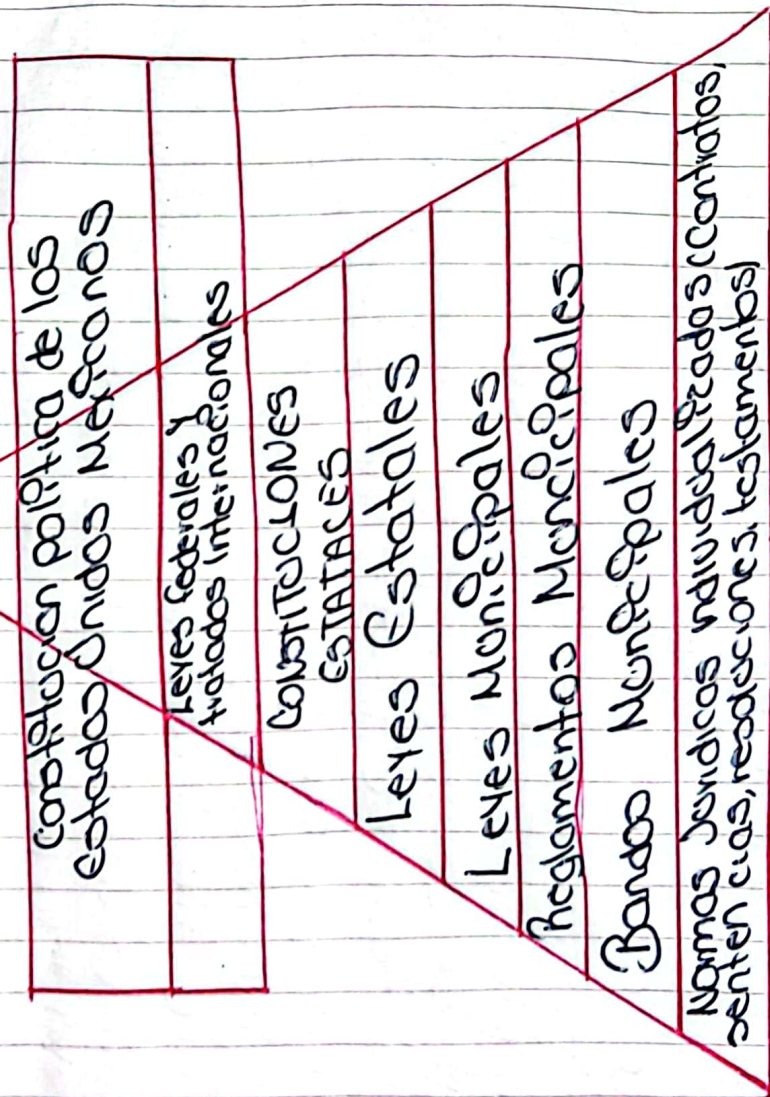 Constitucion política de los
Estados Unidos Mexicanos
Leyes federales y
tratados internacionales
CONSTITUCIONES
ESTATALES
Leyes Estatales
Leyes Municipales
Reglamentos Municipales
Bandos Municipales
Normas Juridicas individualizadas (Contratos,
sentencias, resoluciones, testamentos)